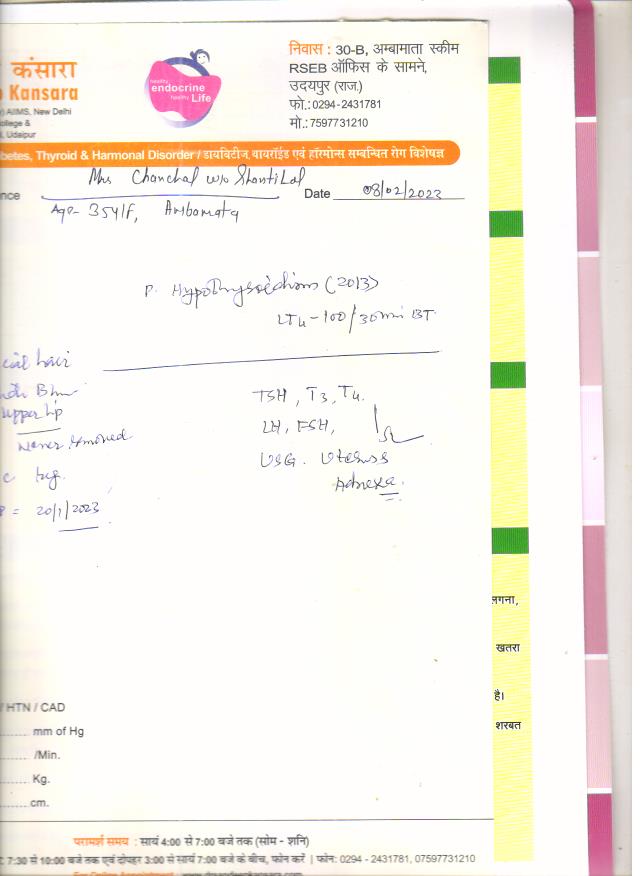 कंसारा
Kansara
AIIMS, New Delhi
College &
Udaipur
healthy
endocrine
healthy Life
निवास : 30-B, अम्बामाता स्कीम
RSEB ऑफिस के सामने,
उदयपुर (राज.)
फो.:0294-2431781
मो.:7597731210
betes, Thyroid & Harmonal Disorder / डायबिटीज, थायरॉईड एवं हॉरमोन्स सम्बन्धित रोग विशेषज्ञ
nce Mrs Chanchal w/o Shanti Lal Date 08/02/2023
Age- 35y/F, Ambamata
P. Hypothyroidism (2013)
LT4 - 100/30min BT.
cial hair
upper lip
Never removed
TSH, T3, T4.
LH, FSH,
USG. Uterus
Adnexa.
= 20/1/2023
लगना,
खतरा
है।
शरबत
/ HTN / CAD
mm of Hg
/Min.
Kg.
cm.
परामर्श समय : सायं 4:00 से 7:00 बजे तक (सोम - शनि)
7:30 से 10:00 बजे तक एवं दोपहर 3:00 से सायं 7:00 बजे के बीच, फोन करें | फोन: 0294 - 2431781, 07597731210
For Online Appointment :